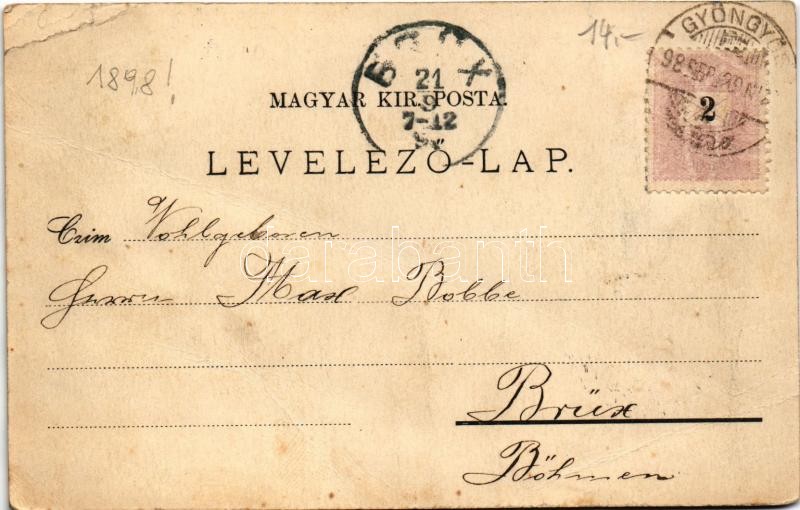 14.-
1898!
GYÖNGYÖS
98 SEP. 20
2
BRÜX
21
9
7-12
98
MAGYAR KIR. POSTA.
LEVELEZŐ-LAP.
Czim Wohlgeboren
Herrn Max Bobbe
Brüx
Böhmen
darabanth